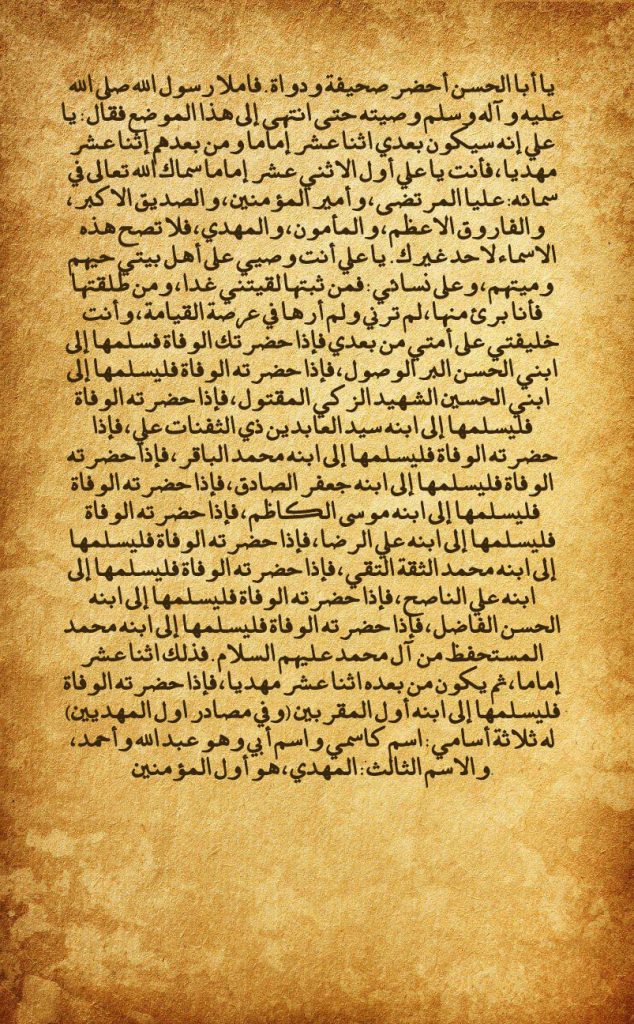 يا أبا الحسن أحضر صحيفة ودواة. فاملا رسول الله صلى الله
عليه وآله وسلم وصيته حتى انتهى إلى هذا الموضع فقال: يا
علي إنه سيكون بعدي اثنا عشر إماما ومن بعدهم إثنا عشر
مهديا، فأنت يا علي أول الاثني عشر إماما سماك الله تعالى في
سمائه: عليا المرتضى، وأمير المؤمنين، والصديق الاكبر،
والفاروق الاعظم، والمأمون، والمهدي، فلا تصح هذه
الاسماء لاحد غيرك. يا علي أنت وصيي على أهل بيتي حيهم
وميتهم، وعلى نسائي: فمن ثبتها لقيتني غدا، ومن طلقتها
فأنا برئ منها، لم ترني ولم أرها في عرصة القيامة، وأنت
خليفتي على أمتي من بعدي فإذا حضرتك الوفاة فسلمها إلى
ابني الحسن البر الوصول، فإذا حضرته الوفاة فليسلمها إلى
ابني الحسين الشهيد الزكي المقتول، فإذا حضرته الوفاة
فليسلمها إلى ابنه سيد العابدين ذي الثفنات علي، فإذا
حضرته الوفاة فليسلمها إلى ابنه محمد الباقر، فإذا حضرته
الوفاة فليسلمها إلى ابنه جعفر الصادق، فإذا حضرته الوفاة
فليسلمها إلى ابنه موسى الكاظم، فإذا حضرته الوفاة
فليسلمها إلى ابنه علي الرضا، فإذا حضرته الوفاة فليسلمها
إلى ابنه محمد الثقة التقي، فإذا حضرته الوفاة فليسلمها إلى
ابنه علي الناصح، فإذا حضرته الوفاة فليسلمها إلى ابنه
الحسن الفاضل، فإذا حضرته الوفاة فليسلمها إلى ابنه محمد
المستحفظ من آل محمد عليهم السلام. فذلك اثنا عشر
إماما، ثم يكون من بعده اثنا عشر مهديا، فإذا حضرته الوفاة
فليسلمها إلى ابنه أول المقربين (وفي مصادر اول المهديين)
له ثلاثة أسامي: اسم كاسمي واسم أبي وهو عبد الله وأحمد،
والاسم الثالث: المهدي، هو أول المؤمنين.